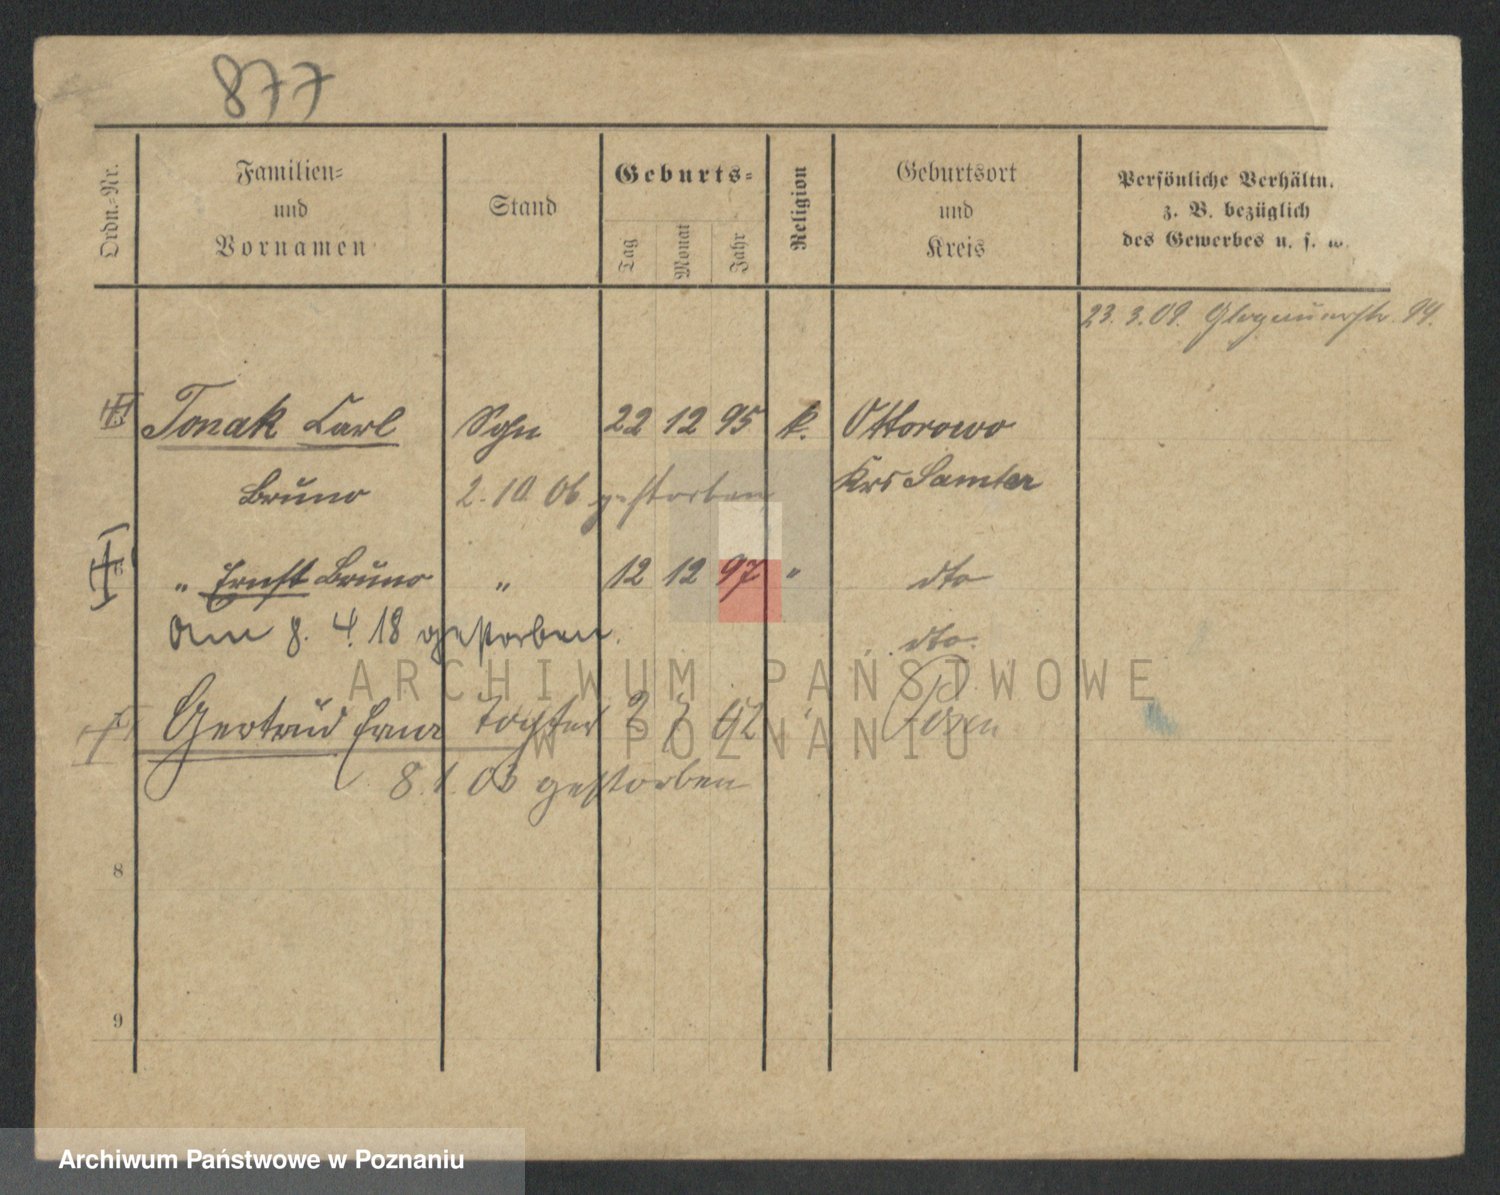 877
Ordn.-Nr.
Familien-
und
Vornamen
Stand
Geburts-
Tag
Monat
Jahr
Religion
Geburtsort
und
Kreis
Persönliche Verhältn.
z. B. bezüglich
des Gewerbes u. s. w.
23. 3. 09. Glogauerstr. 94.
Tonak Carl Sohn 22 12 95 k. Ottorowo
Bruno 2. 10 06 gestorben Krs Samter
6 " Ernst Bruno " 12 12 97 " dto
Am 8. 4. 18 gestorben. dto.
Gertrud Erna Tochter 3 7 02 " Posen
8. 1. 03 gestorben
8
9
ARCHIWUM PAŃSTWOWE
W POZNANIU
Archiwum Państwowe w Poznaniu